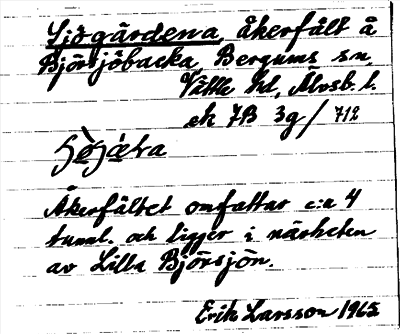 Sjögärdena, åkerfält å
Björsjöbacka, Bergums sn,
Vättle hd, Älvsb. l.
ek 7B 3g/712
Åkerfältet omfattar c:a 4
tunnl. och ligger i närheten
av Lilla Björsjön.
Erik Larsson 1965